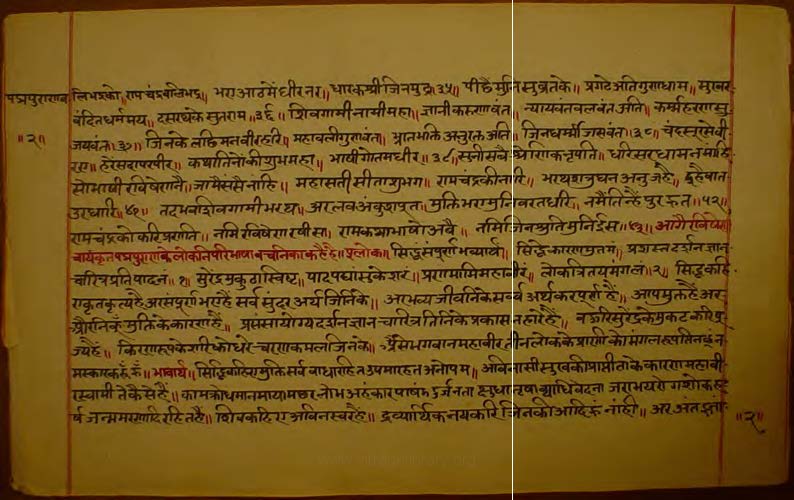 पद्मपुराणव लिभद्रको॥ रामचंद्रबलिभद्र॥ भए आठमें धीर नर॥ धारक श्री जिनमुद्र॥३५॥ पीछै मुनि सुव्रतके॥ प्रगटे अति गुणधाम॥ सुरनर
॥२॥
वंदित धर्ममय॥ दसरथके सुत राम॥३६॥ शिवगामी नामी महा॥ ज्ञानी करुणावंत॥ न्यायवंत बलवंत अति॥ कर्म्महरण सु
जयवंत॥३७॥ जिनके लछिमन वीर हरि॥ महावली गुणवंता॥ भ्रातभक्ति अनुरक्त अति॥ जिनधर्म्मी जसवंत॥३८॥ चंद्र सूरसे वी
हरे सदा परपीर॥ कथा तिनोंकी शुभ महा॥ भाषी गोतम धीर॥ सुनी सबै श्रेणिक नृपति॥ धरि सरधा मन मांहि
सो भाषी रविषेणनै॥ जामै संसै नांहि॥ महासती सीता शुभग॥ रामचंद्रकी नारि॥ भरथ शत्रुघन अनुज है॥
उरधारि॥४१॥ तदभव शिवगामी भरथ॥ अर लव अंकुश पूत॥ मुक्ति भए मुनिवरत धरि॥ नमै तिन्है पुरहूत॥४२॥
रामचंद्रको करि प्रणति॥ नमि रविषेण रषीस॥ रामकथा भाषो अबै॥ नमि जिन श्रुति मुनि ईस॥४३॥ आगै रविषेणा
चार्यकृत पद्मपुराणके लोकनि परि भाषा वचनिका कहै है॥ श्लोक॥ सिद्धं संपूर्ण भव्यार्थं॥ सिद्धेः कारणमुत्तमं॥ प्रशस्त दर्शन ज्ञान
चारित्र प्रतिपादनं॥१॥ सुरेंद्र मुकुटास्लिष्ट॥ पादपद्मांसु केशरं॥ प्रणमामि महावीरं॥ लोकत्रितय मंगलं॥२॥ सिद्ध कहि
ए कृतकृत्य है अर संपूर्ण भए है सर्व सुंदर अर्थ जिनिके॥ अर भव्य जीवनिके सर्व्व अर्थ करणा है॥ आप मुक्त है अर
औरनिकूं मुक्तिके कारण है॥ प्रसंसा योग्य दर्शन ज्ञान चारित्र तिनिके प्रकासनहारे है॥ सुरेंद्रके मुकट करि पू
ज्य है॥ किरणरूप केशरि को धरे चरणकमल जिनके॥ ऐसे भगवान महावीर तीन लोकके प्राणीको मंगलरूप तिनकूं न
मस्कार करूं हूं॥ भावार्थ॥ सिद्धि कहिए मुक्ति सर्व बाधारहित उपमारहत अनोपम॥ अविनासी सुख की प्राप्ती ताके कारण महावी
रस्वामी ते कैसे है॥ काम क्रोध मान माया मछर लोभ अहंकार पाषंड दुर्जनता क्षुधा तृषा व्याधि वेदना जरा भय रोग शोक ह
र्ष जन्म मरणादि रहित है॥ शिव कहिए अविनस्वर है॥ द्रव्यार्थिक नय करि जिनकी आदि नांही॥ अर अंत
॥२॥